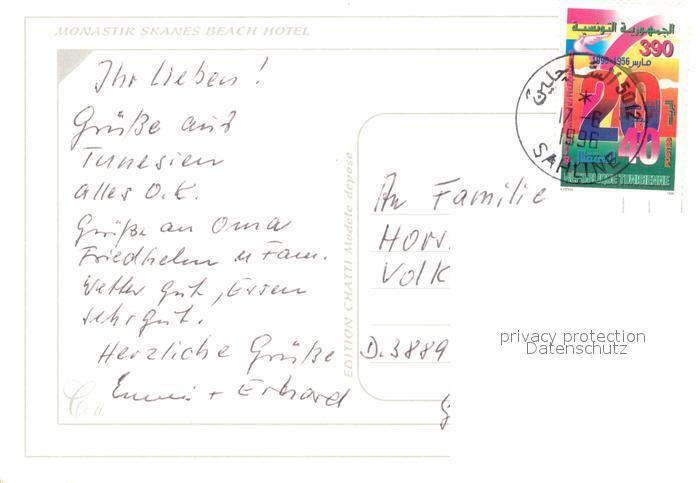 MONASTIR SKANES BEACH HOTEL
Ihr Lieben!
Grüße aus
Tunesien
alles O.K.
Grüße an Oma
Friedhelm u Fam.
Wetter gut, Essen
sehr gut.
Herzliche Grüße
+ Erhard
EDITION CHATTI Modèle déposé
An Familie
Horr.
Volk
D.3889
الجمهورية التونسية
390
مارس 1956-1996
20
40
REPUBLIQUE TUNISIENNE
5012
17-6
1996
SAHLINE
privacy protection
Datenschutz